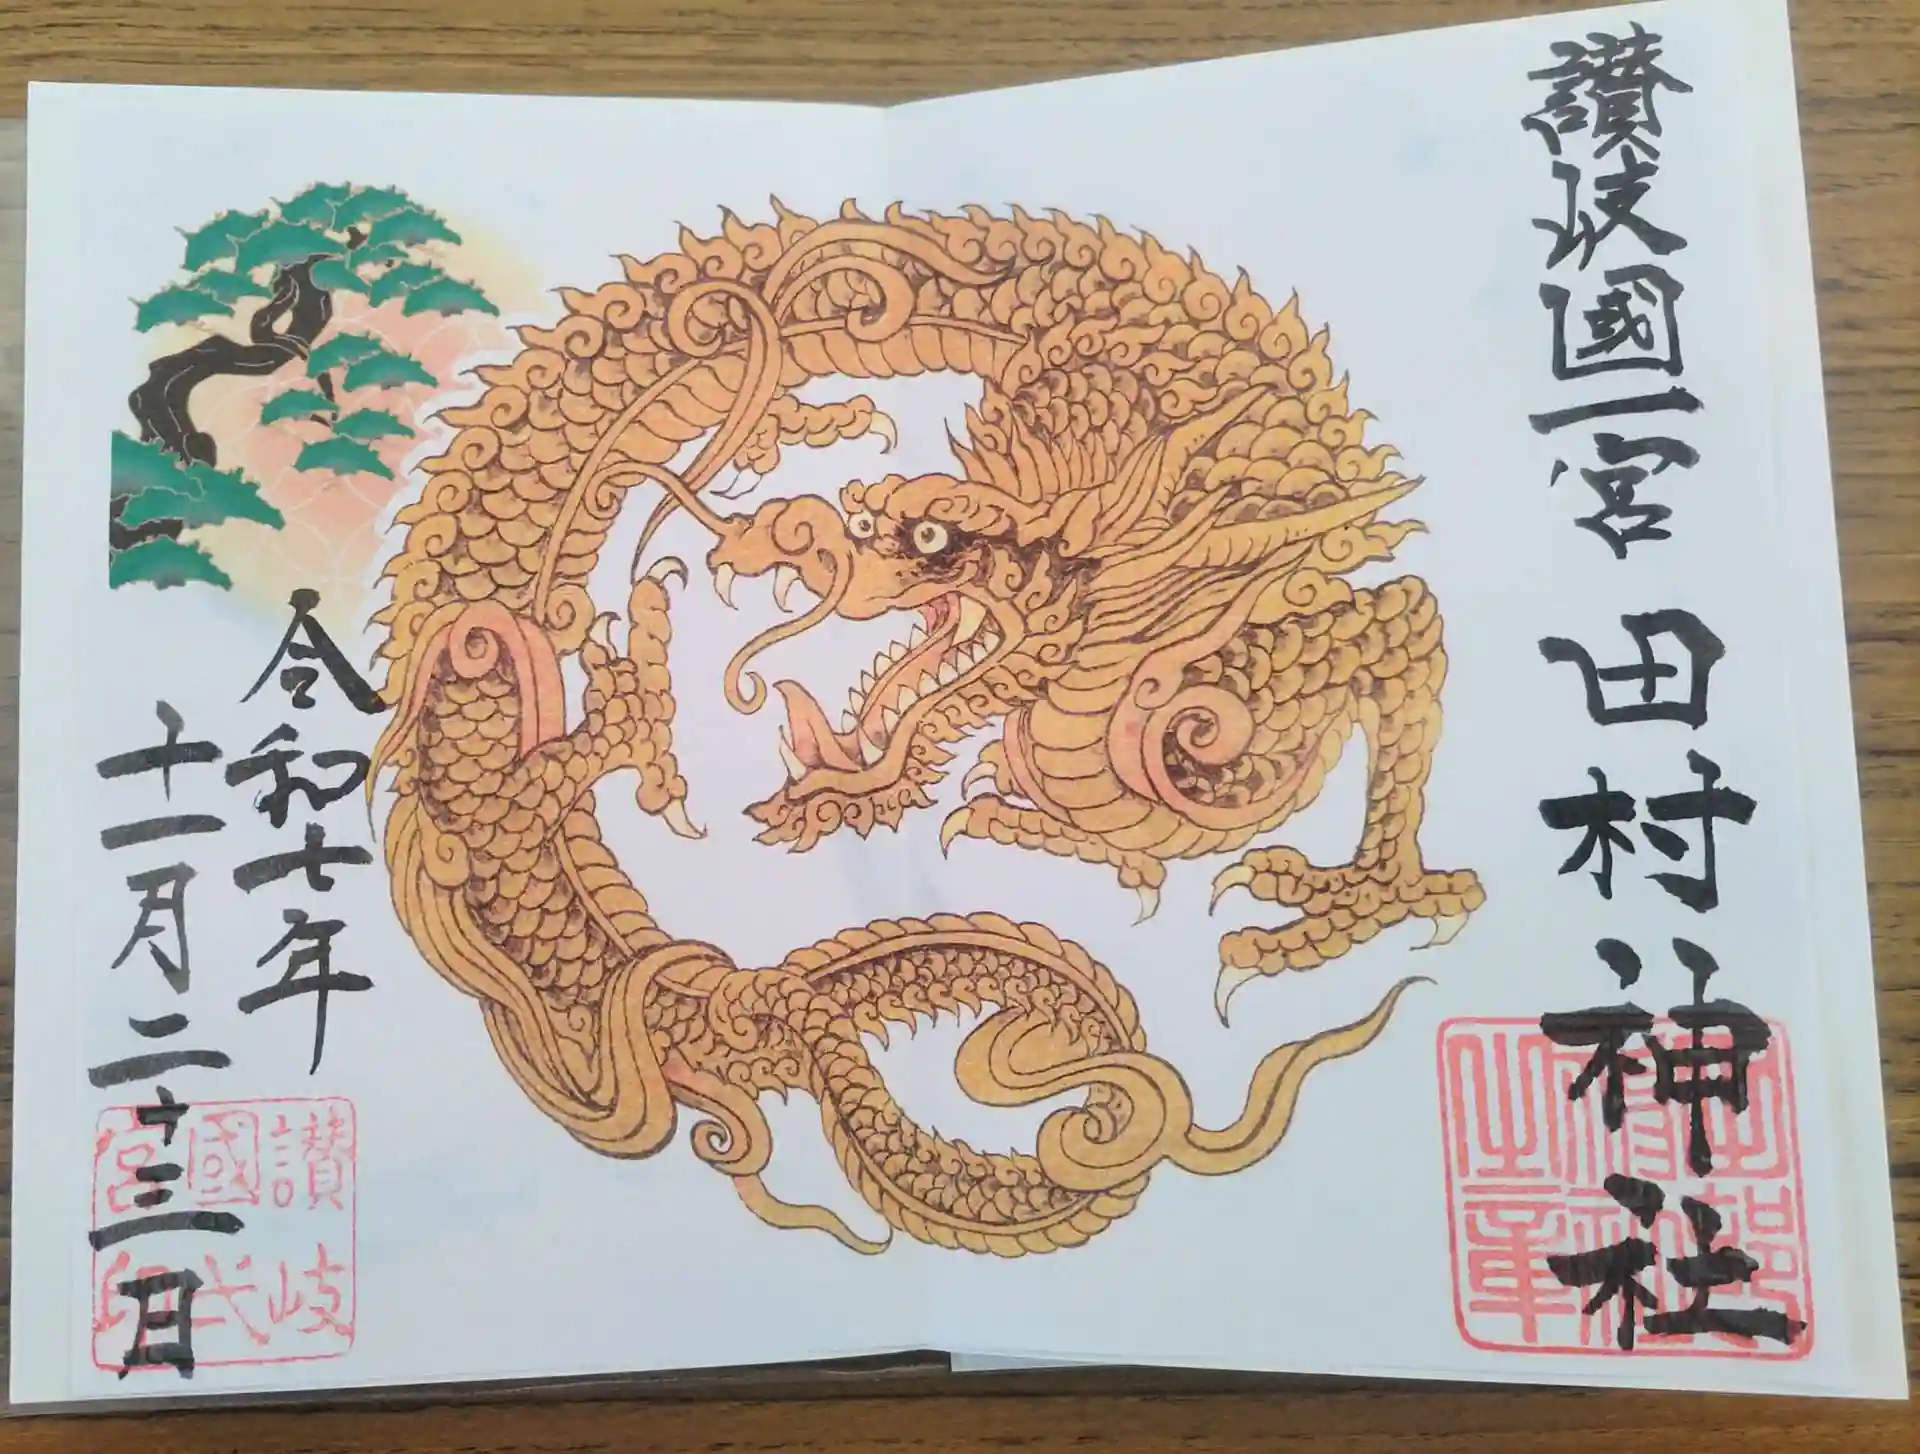 讃岐國一宮 田村神社
令和七年
十一月二十三日
讃岐
國弌
宮印